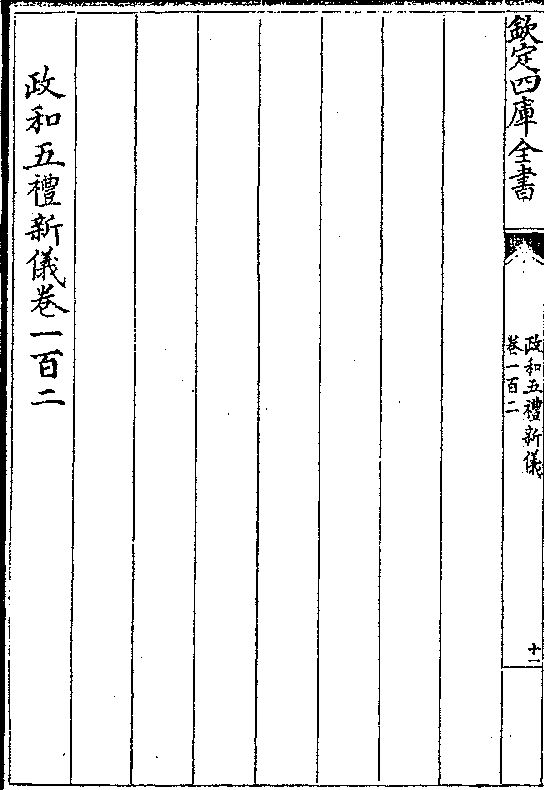 欽定四庫全書
政和五禮新儀
卷一百二
十一
政和五禮新儀卷一百二